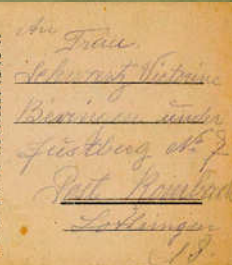 An
Frau
Schwartz Victorine
Beringen under
Justberg No 7
Post Rombach
Lothringen